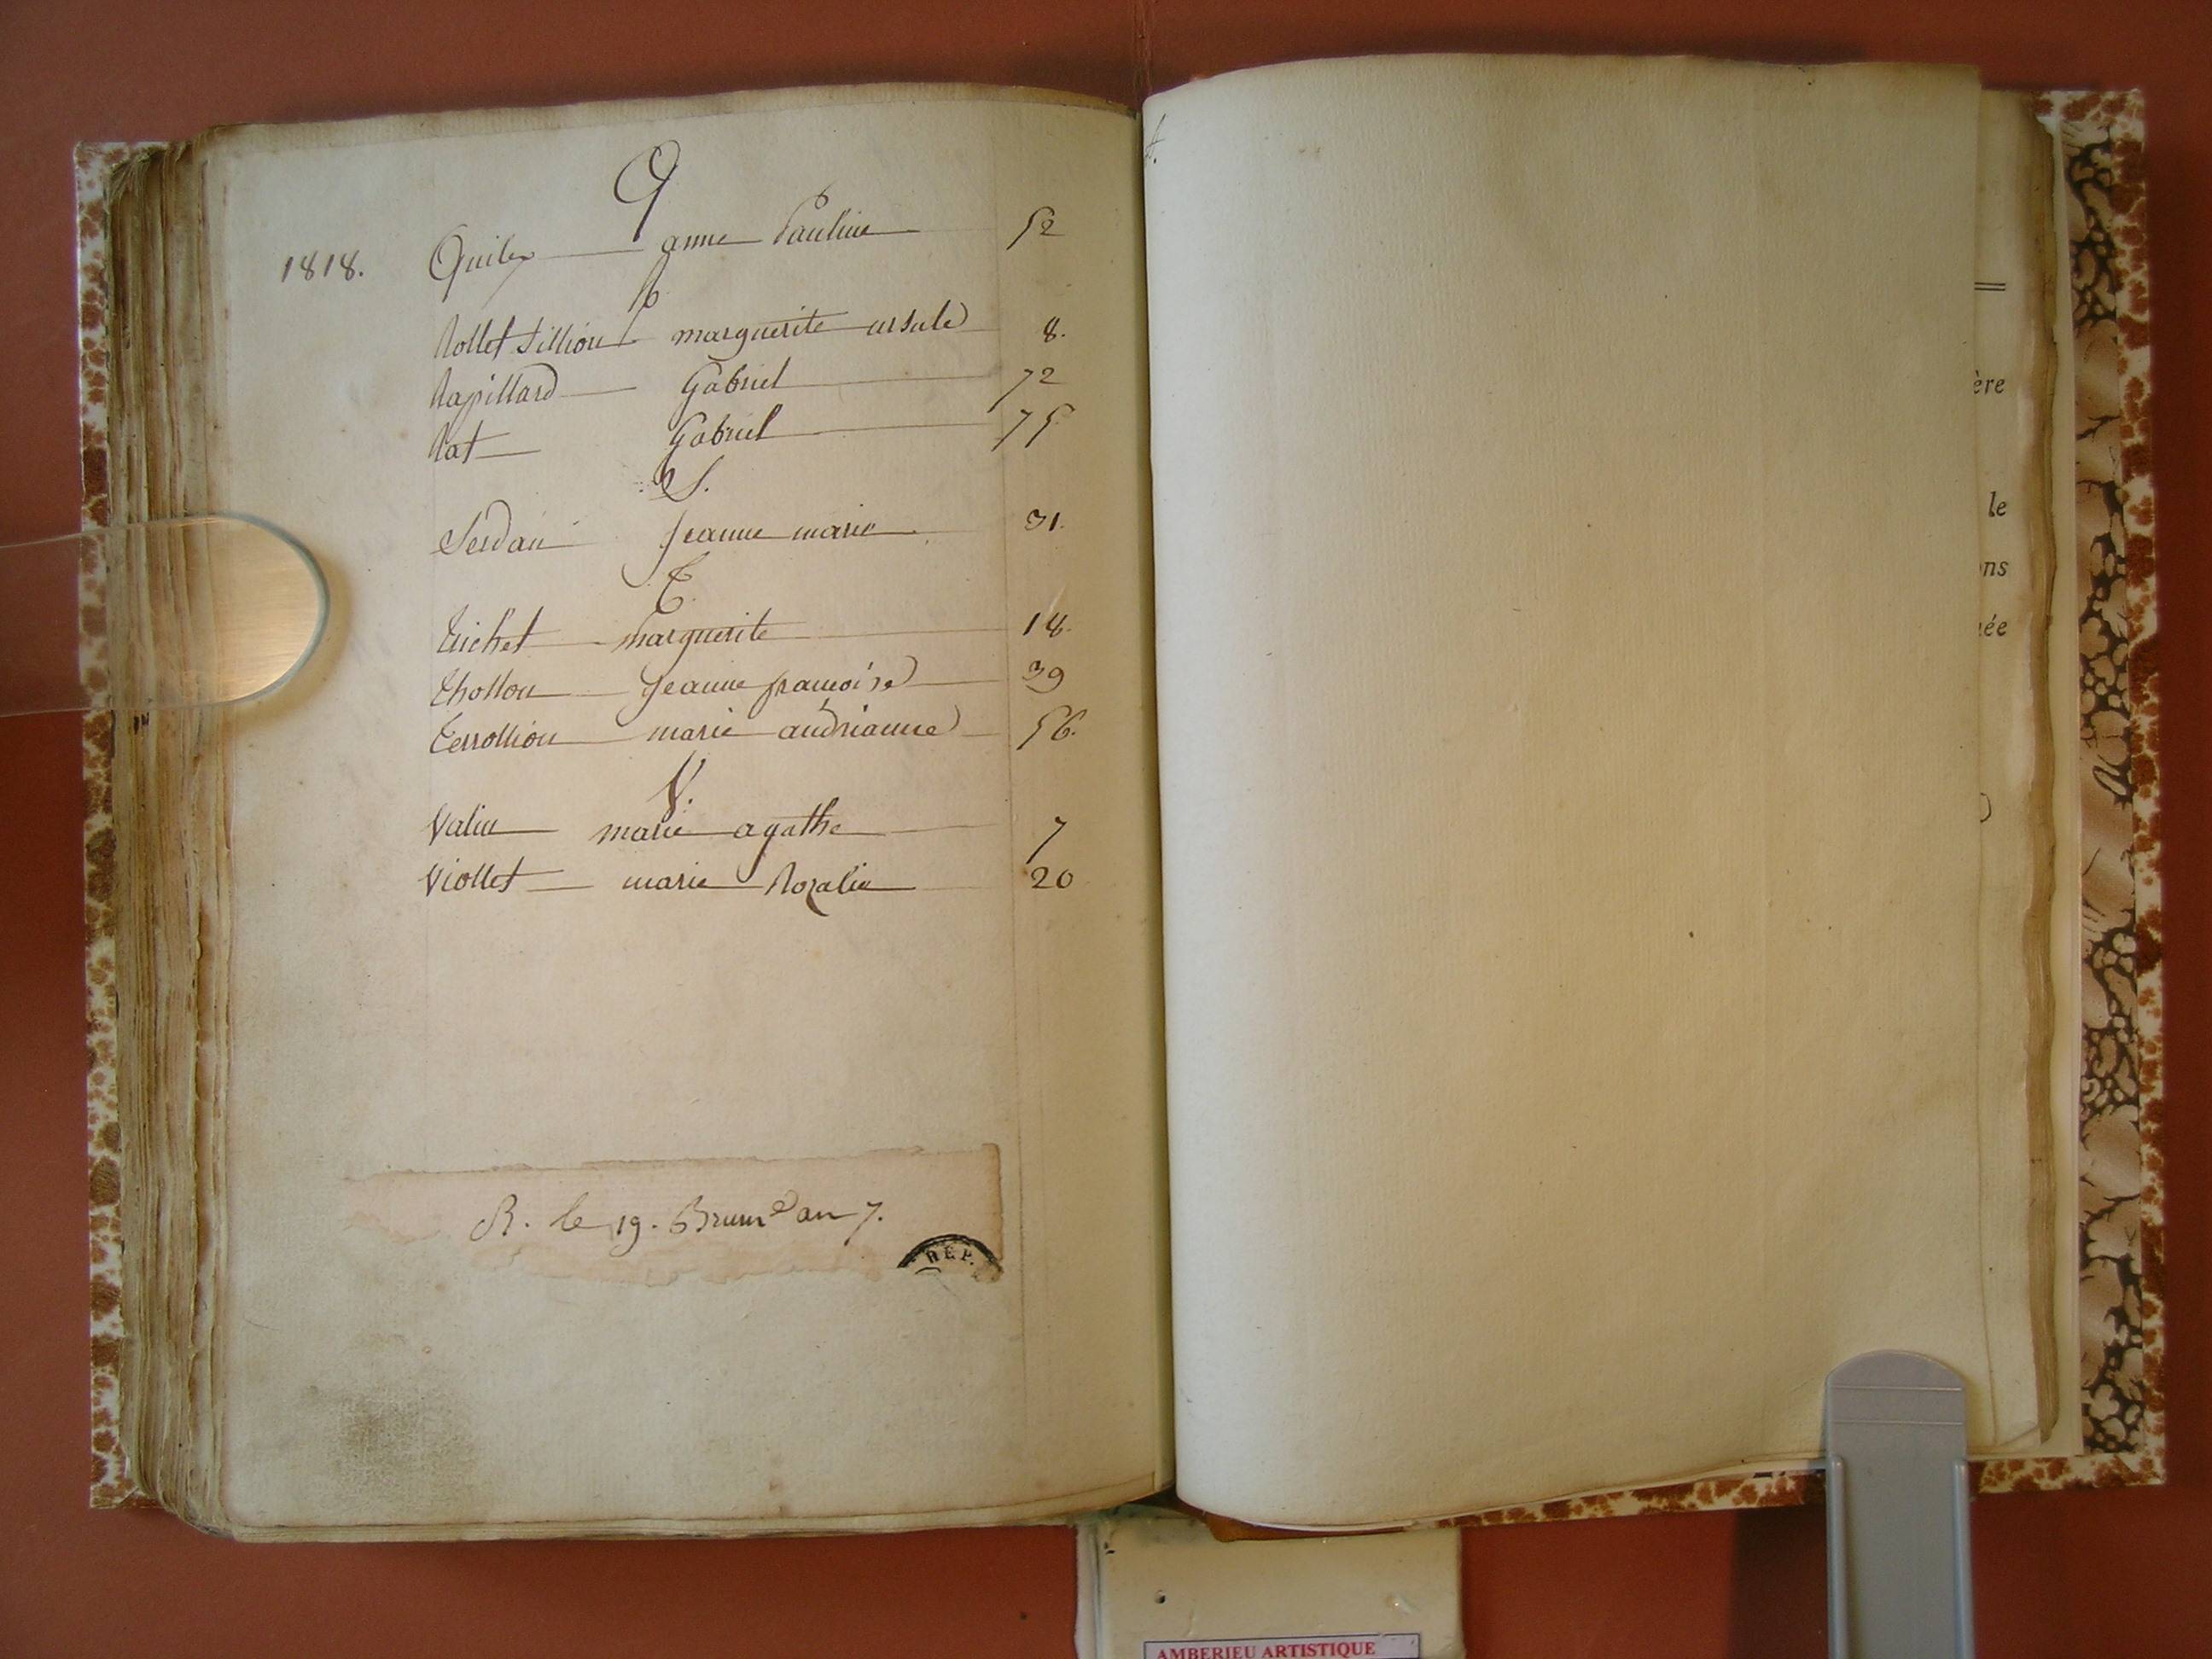 Q
1818. anne Pauline 52
R
Rollet Tillion marguerite ursule 8.
Rapillard Gabriel 72
Rat Gabriel 75
S.
Serdan jeanne marie 31.
T.
Trichet Marguerite 18.
Thollon Jeanne francoise 39
Terrollion marie andrianne 56.
V.
Valin marie agathe 7
Viollet marie Rozalie 20
R. le 19. Brum.e an 7.
RÉP.
ère
le
ons
née
AMBERIEU ARTISTIQUE